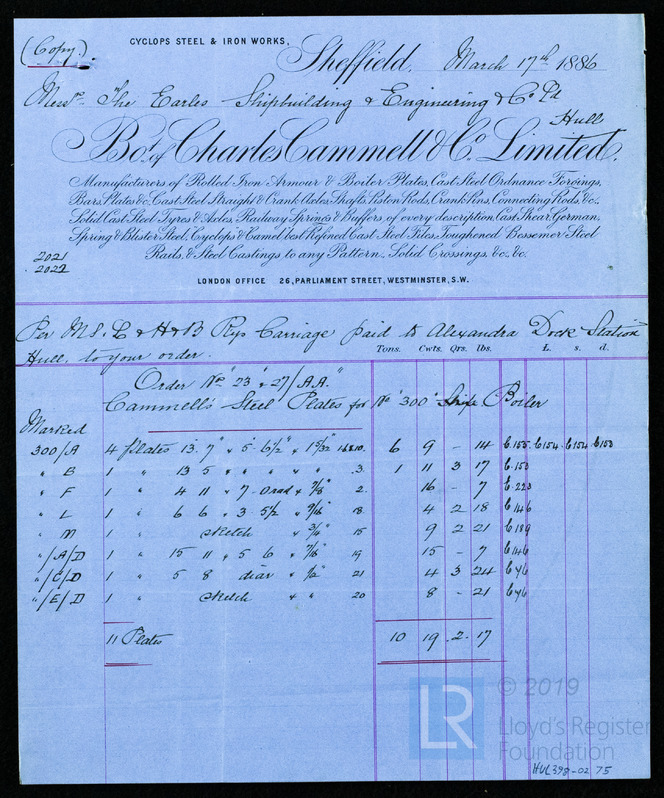 (Copy).
CYCLOPS STEEL & IRON WORKS,
Sheffield, March 17th 1886
Messrs. The Earles Shipbuilding & Engineering & Co Ld
Hull
Bot. of Charles Cammell & Co. Limited.
Manufacturers of Rolled Iron Armour & Boiler Plates, Cast Steel Ordnance Forgings,
Bars, Plates &c, Cast Steel Straight & Crank Axles, Shafts, Piston Rods, Crank Pins, Connecting Rods &c.,
Solid Cast Steel Tyres & Axles, Railway Springs & Buffers of every description, Cast, Shear, German,
Spring & Blister Steel, Cyclops & Camel best Refined Cast Steel Files, Toughened Bessemer Steel
Rails, & Steel Castings to any Pattern, Solid Crossings, &c. &c.
2021
2022
LONDON OFFICE 26, PARLIAMENT STREET, WESTMINSTER, S.W.
Per M S. L & H & B Rys Carriage paid to Alexandra Dock Station
Hull, to your order.
Tons. Cwts. Qrs. lbs. £. s. d.
Order No "23" & "27/A.A."
Cammell's Steel Plates for No "300" Ship Boiler
Marked
300/A 4 plates 13. 7 " 5. 6 1/2 " 1 5/32 6 9 - 14 C.155 C154 C154 C153
" B 1 " 13 5 " " " " 3. 1 11 3 17 C.153
" F 1 " 4 11 " 7. 0 rad " 7/8 2. 16 - 7 C.223
" L 1 " 6 6 " 3. 5 1/2 " 9/16 18 4 2 18 C146
" M 1 " sketch " 3/4 15 9 2 21 C189
"/A/D 1 " 15 11 " 5 6 " 7/16 19 15 - 7 C146
"/C/D 1 " 5 8 diar " 1/2 21 4 3 24 C46
"/E/D 1 " sketch " " 20 8 - 21 C46
11 Plates 10 19 2 17
LR
© 2019
Lloyd's Register
Foundation
HUL398-02 75